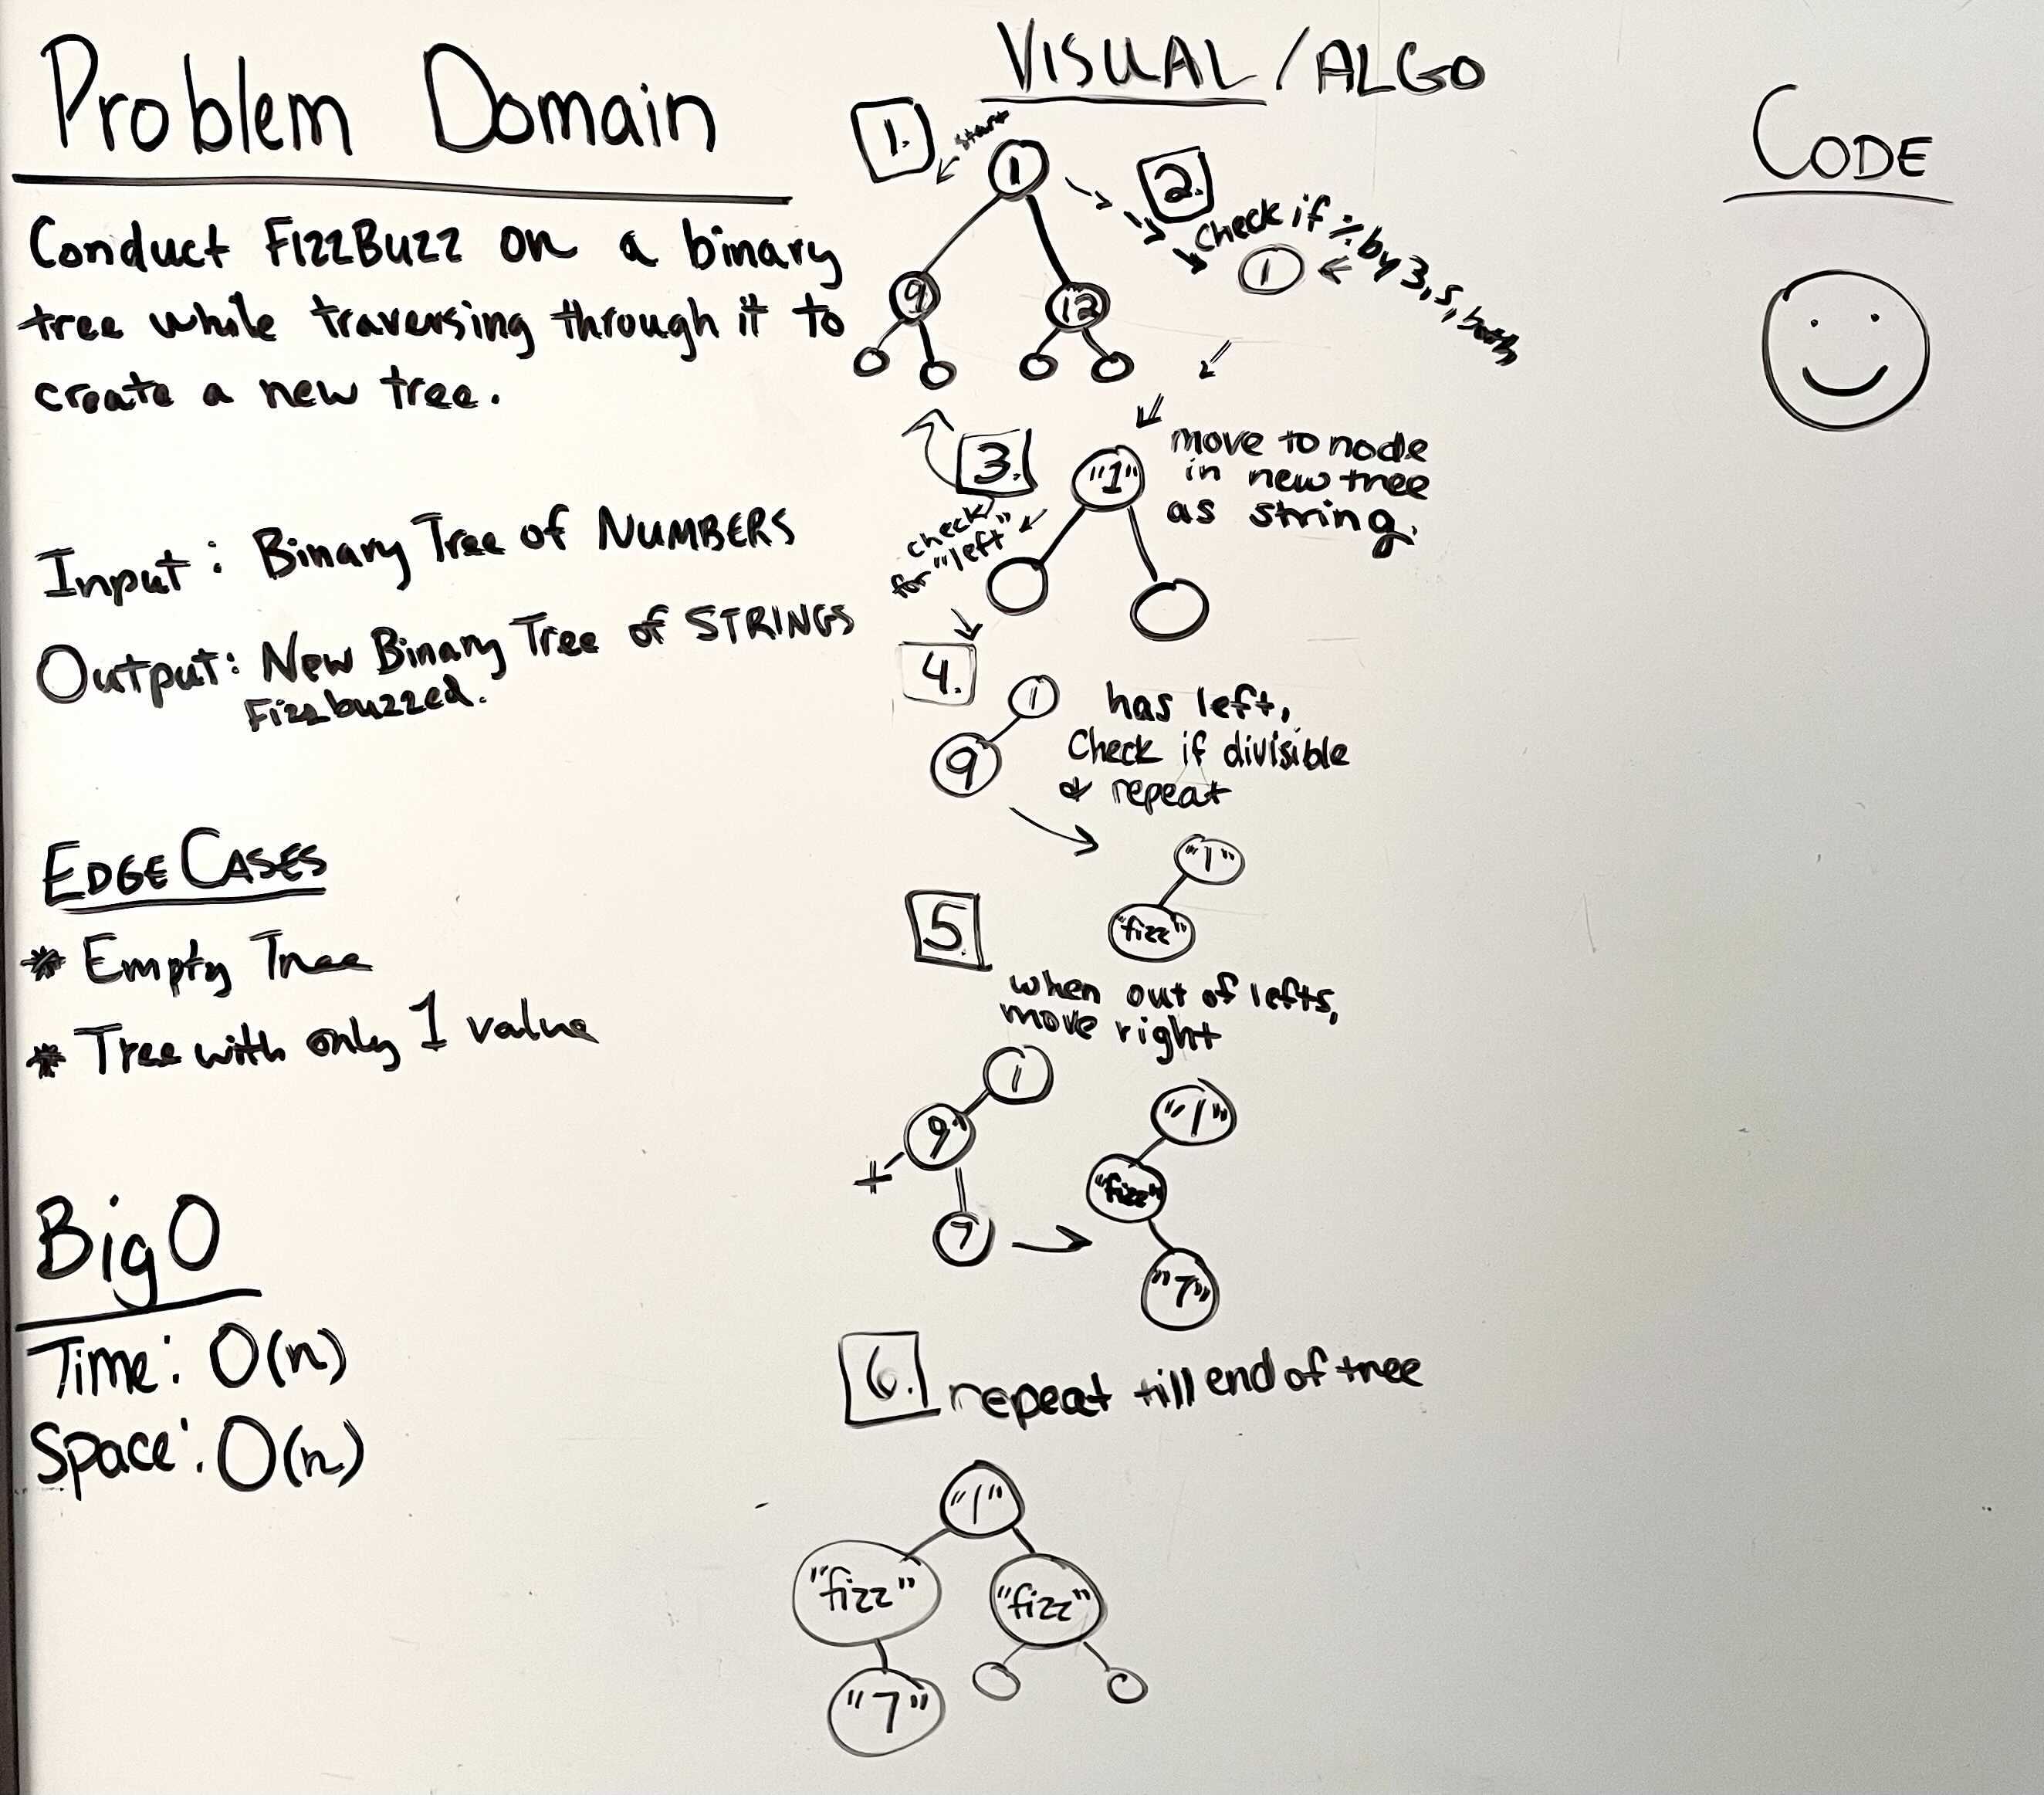 Problem Domain
Conduct FIZZBUZZ on a binary
tree while traversing through it to
create a new tree.
Input: Binary Tree of NUMBERS
Output: New Binary Tree of STRINGS
Fizzbuzzed.
EDGE CASES
* Empty Tree
* Tree with only 1 value
Big O
Time: O(n)
Space: O(n)
VISUAL/ALGO
1.
start
1
9
12
2.
Check if % by 3, 5, both
1
3.
check
for "left"
"1"
move to node
in new tree
as string.
4.
1
9
has left,
Check if divisible
& repeat
"1"
"fizz"
5.
when out of lefts,
move right
1
9
7
"1"
"fizz"
"7"
6.
repeat till end of tree
"1"
"fizz"
"fizz"
"7"
CODE